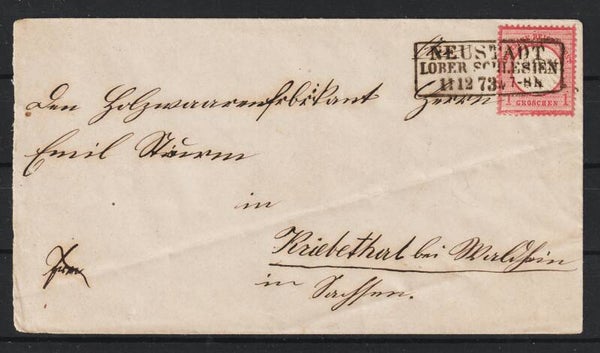 NEUSTADT
I.OBER SCHLESIEN
11 12 73 7-8N
1 GROSCHEN 1
Den Holzwaarenfabrikant Herrn
Emil Sturm
in
Kriebethal bei Waldheim
in Sachsen.